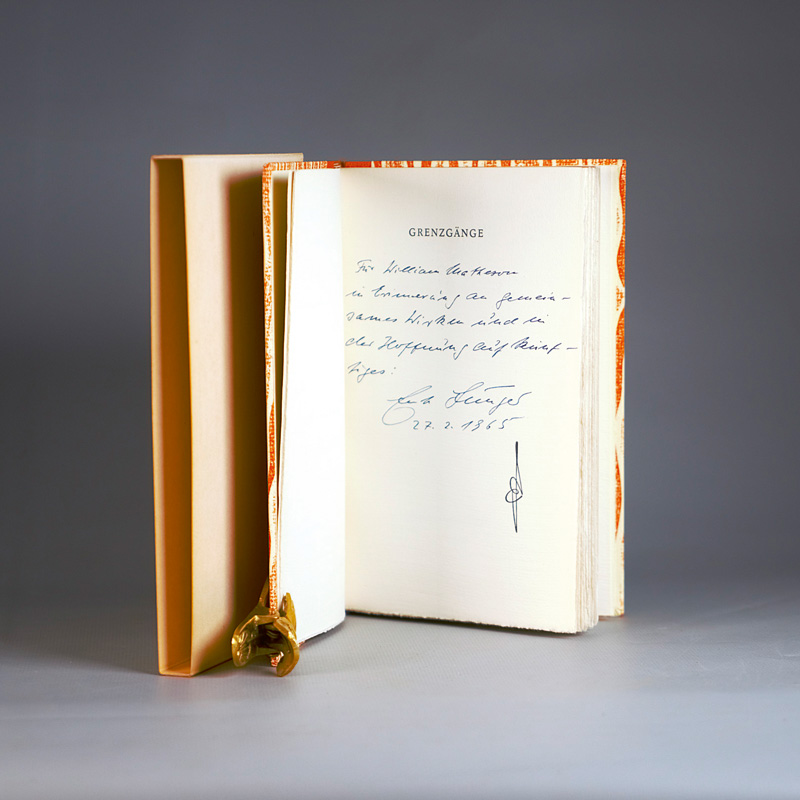 GRENZGÄNGE
Für William Matheson
in Erinnerung an gemein-
sames Wirken und in
der Hoffnung auf künf-
tiges:
Ernst Jünger
27. 2. 1965